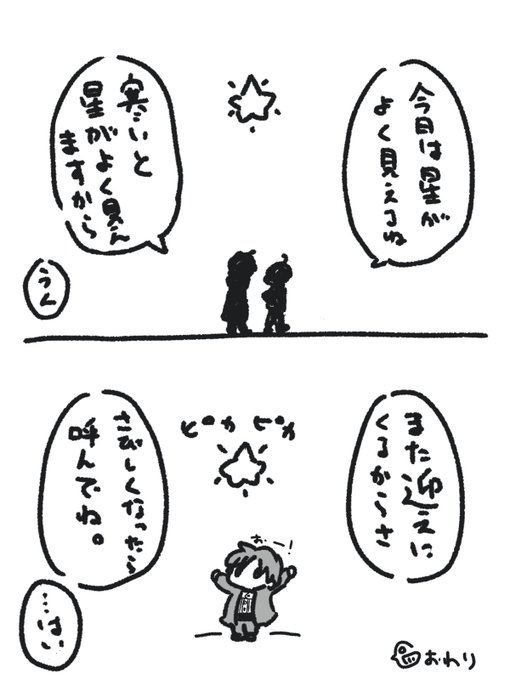 今日は星が
よく見えるね
寒いと
星がよく見え
ますから
うん
また迎えに
くるからさ
ピカ ピカ
おー！
さびしくなったら
呼んでね。
…はい
おわり